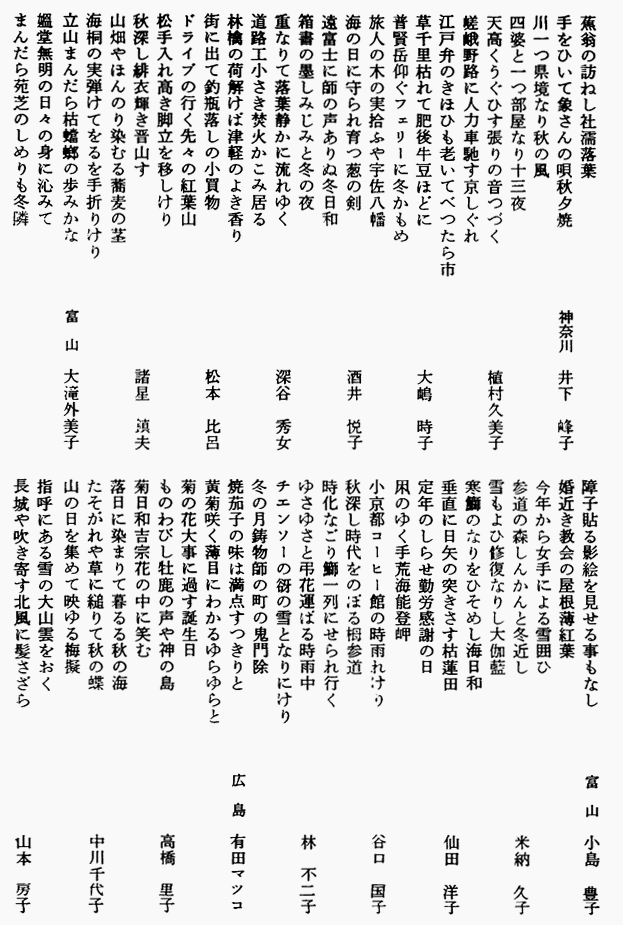 蕉翁の訪ねし社濡落葉
手をひいて象さんの唄秋夕焼
神奈川 井下 峰子
川一つ県境なり秋の風
四婆と一つ部屋なり十三夜
天高くうぐひす張りの音つづく
植村久美子
嵯峨野路に人力車馳す京しぐれ
江戸弁のきほひも老いてべつたら市
草千里枯れて肥後牛豆ほどに
大嶋 時子
普賢岳仰ぐフェリーに冬かもめ
旅人の木の実拾ふや宇佐八幡
海の日に守られ育つ葱の剣
酒井 悦子
遠富士に師の声ありぬ冬日和
箱書の墨しみじみと冬の夜
重なりて落葉静かに流れゆく
深谷 秀女
道路工小さき焚火かこみ居る
林檎の荷解けば津軽のよき香り
街に出て釣瓶落しの小買物
松本 比呂
ドライブの行く先々の紅葉山
松手入れ高き脚立を移しけり
秋深し緋衣輝き晋山す
諸星 滇夫
山畑やほんのり染むる蕎麦の茎
海桐の実弾けてをるを手折りけり
立山まんだら枯蟷螂の歩みかな
富山 大滝外美子
媼堂無明の日々の身に沁みて
まんだら苑芝のしめりも冬隣
障子貼る影絵を見せる事もなし
富山 小島 豊子
婚近き教会の屋根薄紅葉
今年から女手による雪囲ひ
参道の森しんかんと冬近し
米納 久子
雪もよひ修復なりし大伽藍
寒鰤のなりをひそめし海日和
垂直に日矢の突きさす枯蓮田
仙田 洋子
定年のしらせ勤労感謝の日
凩のゆく手荒海能登岬
小京都コーヒー館の時雨れけり
谷口 国子
秋深し時代をのぼる栂参道
時化なごり鰤一列にせられ行く
ゆさゆさと弔花運ばる時雨中
林 不二子
チエンソーの谺の雪となりにけり
冬の月鋳物師の町の鬼門除
焼茄子の味は満点すつきりと
広島 有田マツコ
黄菊咲く薄目にわかるゆらゆらと
菊の花大事に過す誕生日
ものわびし牡鹿の声や神の島
高橋 里子
菊日和吉宗花の中に笑む
落日に染まりて暮るる秋の海
たそがれや草に縋りて秋の蝶
中川千代子
山の日を集めて映ゆる梅擬
指呼にある雪の大山雲をおく
長城や吹き寄す北風に髪さざら
山本 房子